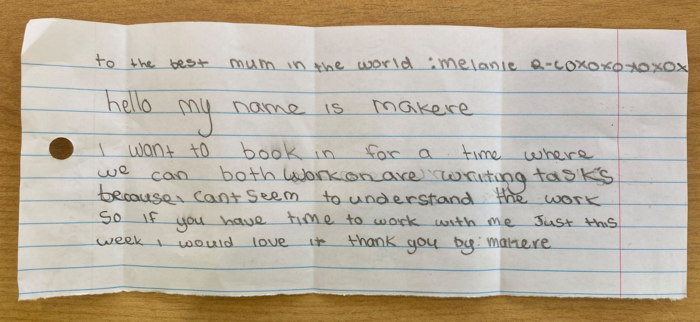 to the best mum in the world :melanie R-Coxoxoxoxox
hello my name is makere
I want to book in for a time where
we can both work on are writing tasks
because i cant seem to understand the work
so if you have time to work with me Just this
week i would love it thank you by: makere